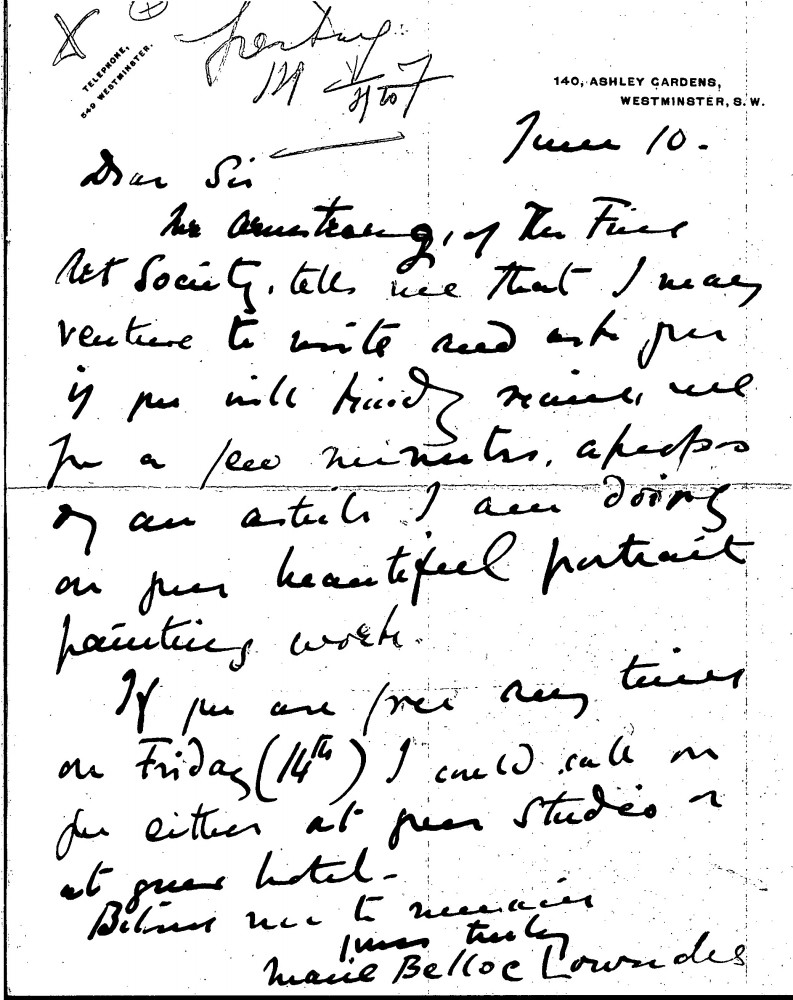 TELEPHONE,
540 WESTMINSTER.
140, ASHLEY GARDENS,
WESTMINSTER, S.W.
June 10.
Dear Sir
Mr Armstrong, of The Fine
Art Society, tells me that I may
venture to write and ask you
if you will kindly receive me
for a few minutes, apropos
of an article I am doing
on your beautiful portrait
painting work.
If you are free any time
on Friday (14th) I could call on
you either at your studio or
at your hotel -
Believe me to remain
yours truly
Marie Belloc Lowndes